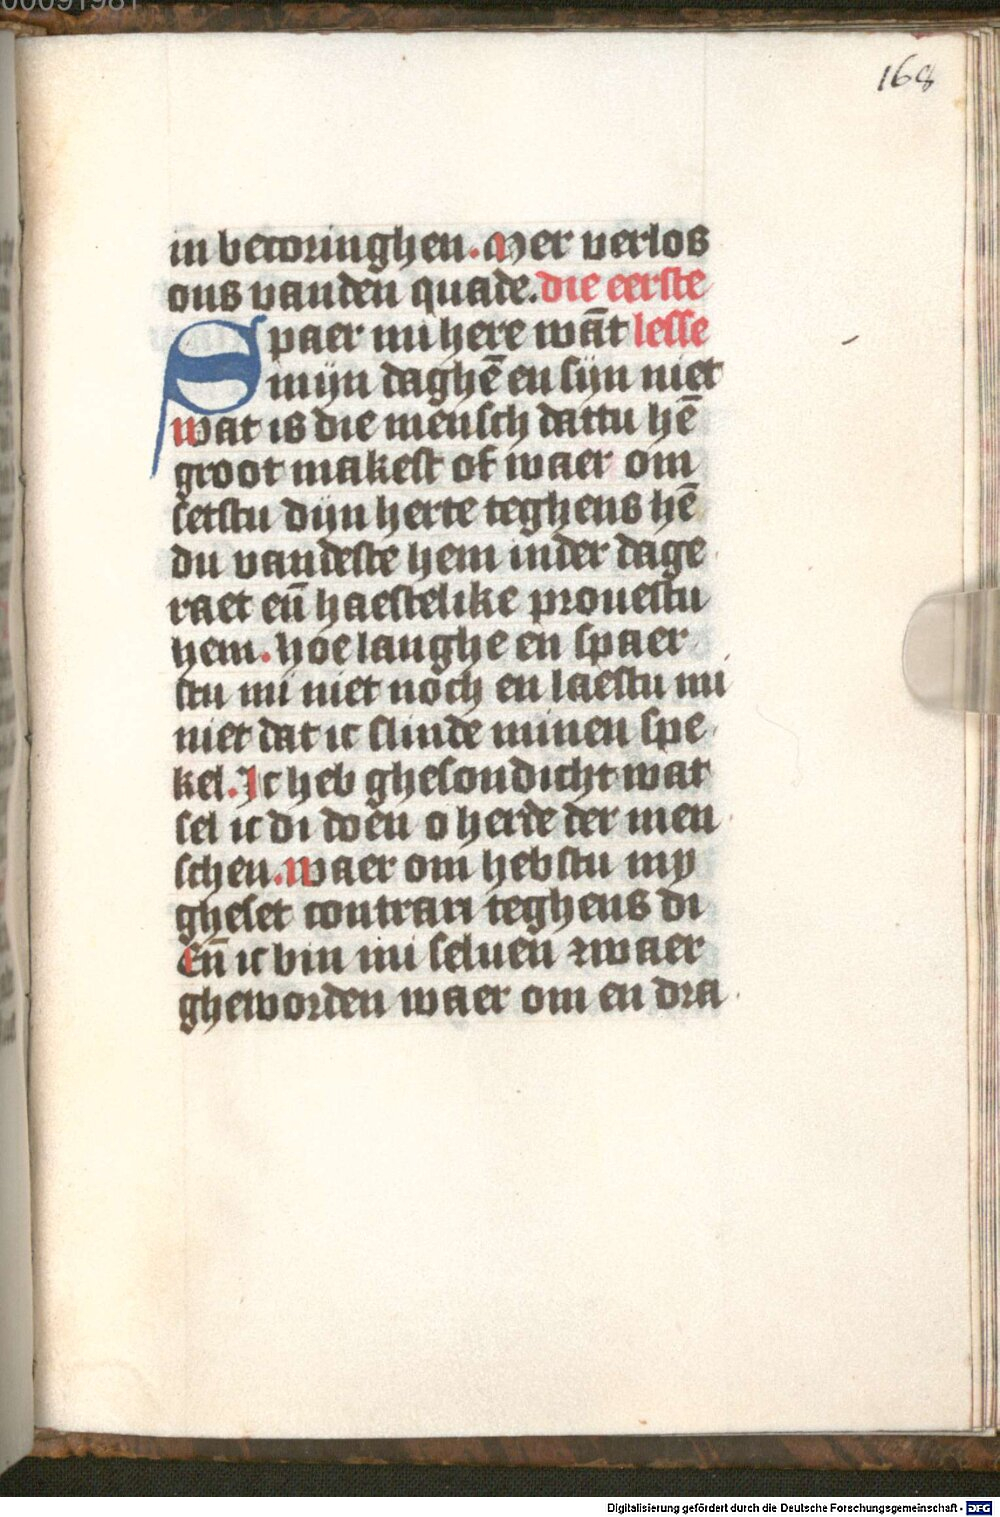 00091981
168
in becoringhen. Mer verlos
ons vanden quade. die eerste
Spaer mi here wāt lesse
mijn daghē en sijn niet
wat is die mensch dattu hē
groot makest of waer om
setstu dijn herte teghens hē
du vandeste hem inder dage
raet eñ haestelike prouestu
hem. hoe langhe en spaer
stu mi niet noch en laestu mi
niet dat ic slinde minen spe
kel. Ic heb ghesondicht wat
sel ic di doen o herde der men
schen. waer om hebstu my
gheset contrari teghens di
Eñ ic bin mi seluen zwaer
gheworden waer om en dra
Digitalisierung gefördert durch die Deutsche Forschungsgemeinschaft - DFG